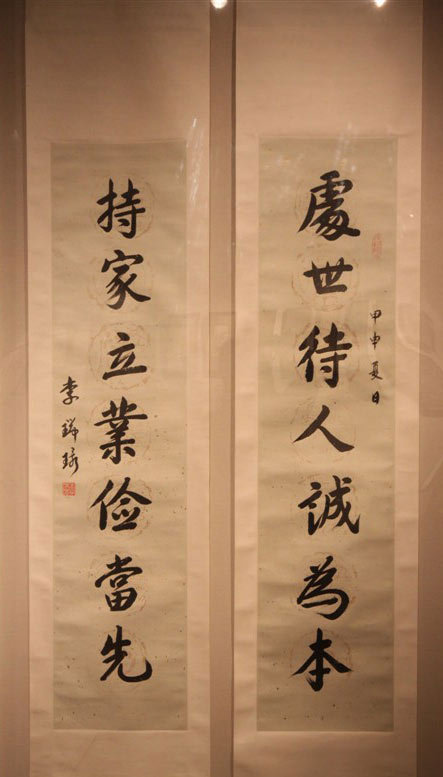 處世待人誠為本
甲申夏日
持家立業俭當先
李瑞